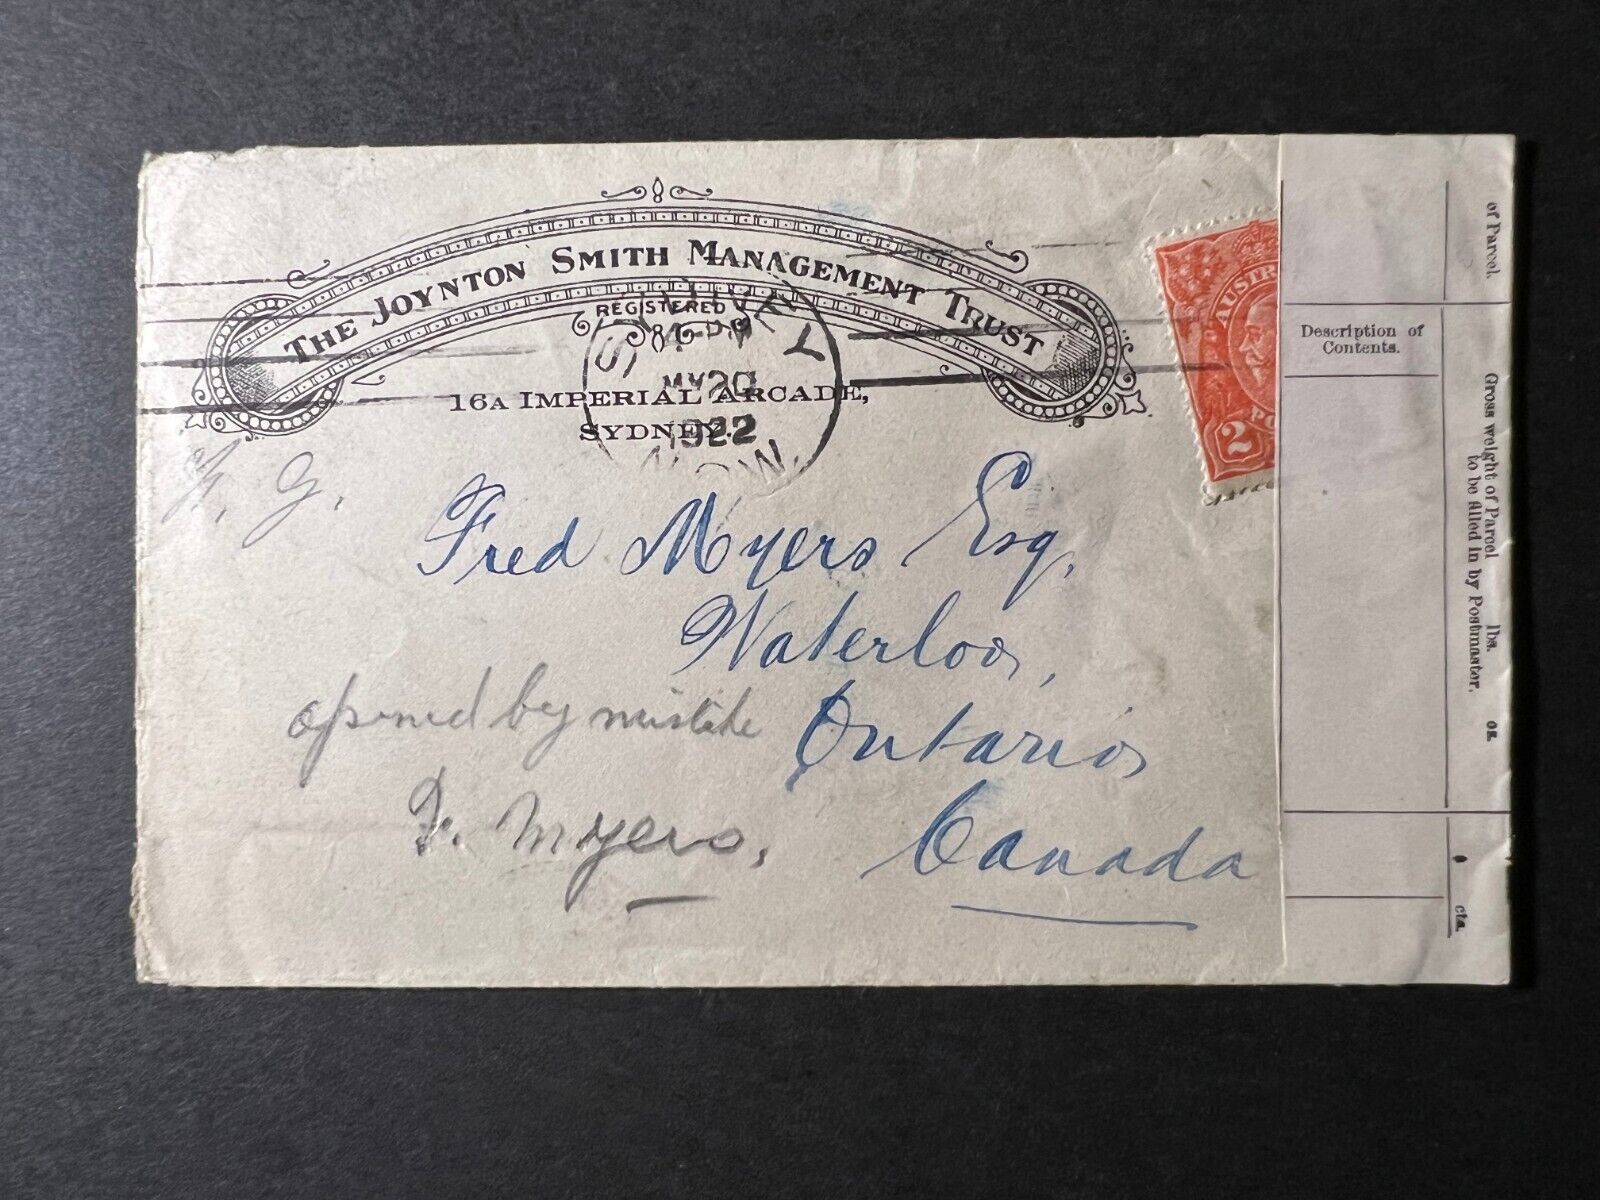 THE JOYNTON SMITH MANAGEMENT TRUST
REGISTERED
16A IMPERIAL ARCADE,
SYDNEY.
SYDNEY
MY 20
1922
N.S.W.
AUSTR
2
Fred Myers Esq.
Waterloo,
Ontario,
Canada
opened by mistake
F. Myers,
of Parcel.
Description of
Contents.
Gross weight of Parcel lbs. oz.
to be filled in by Postmaster.
cts.